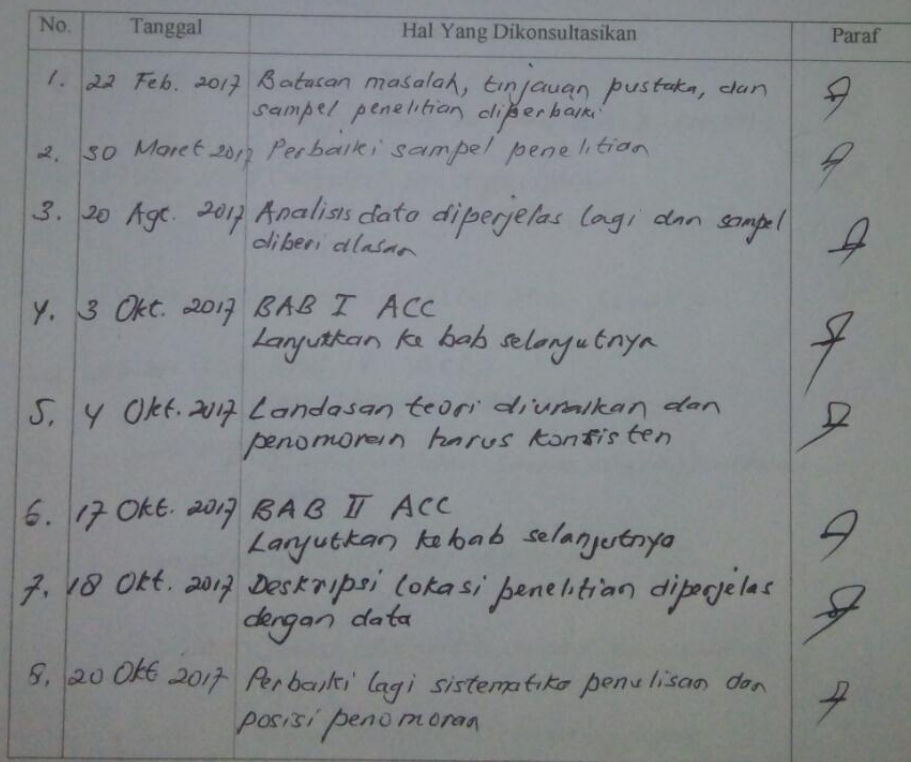 No. Tanggal Hal Yang Dikonsultasikan Paraf
1. 22 Feb. 2017 Batasan masalah, tinjauan pustaka, dan
sampel penelitian diperbaiki
2. 30 Maret 2017 Perbaiki sampel penelitian
3. 20 Agt. 2017 Analisis data diperjelas lagi dan sampel
diberi alasan
4. 3 Okt. 2017 BAB I ACC
Lanjutkan ke bab selanjutnya
5. 4 Okt. 2017 Landasan teori diuraikan dan
penomoran harus konsisten
6. 17 Okt. 2017 BAB II ACC
Lanjutkan ke bab selanjutnya
7. 18 Okt. 2017 Deskripsi lokasi penelitian diperjelas
dengan data
8. 20 Okt 2017 Perbaiki lagi sistematika penulisan dan
posisi penomoran